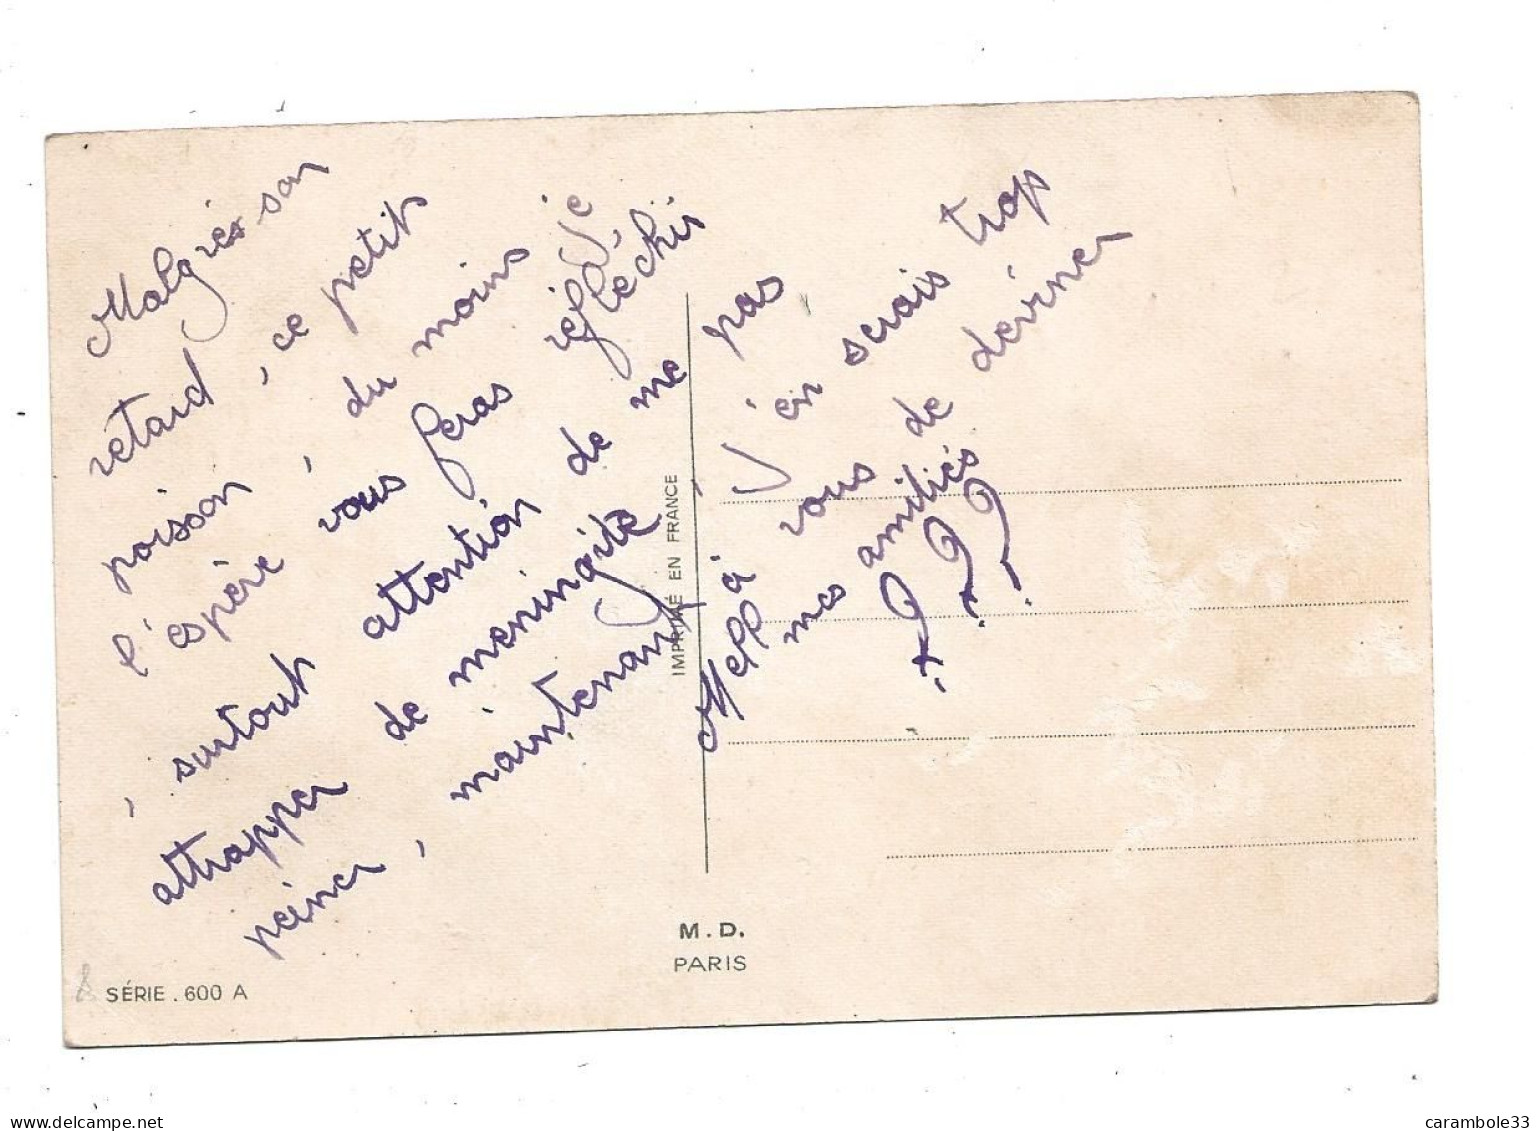 Malgrés son
retard, ce petit
poisson, du moins je
l'espère vous feras réfléchir
, surtout attention de me pas
attrapper de meningite, J'en serais trop
peiner, maintenant à vous de deviner
Mell mes amitiés
? ? ?
IMPRIMÉ EN FRANCE
M. D.
PARIS
SÉRIE. 600 A
delcampe.net
carambole33